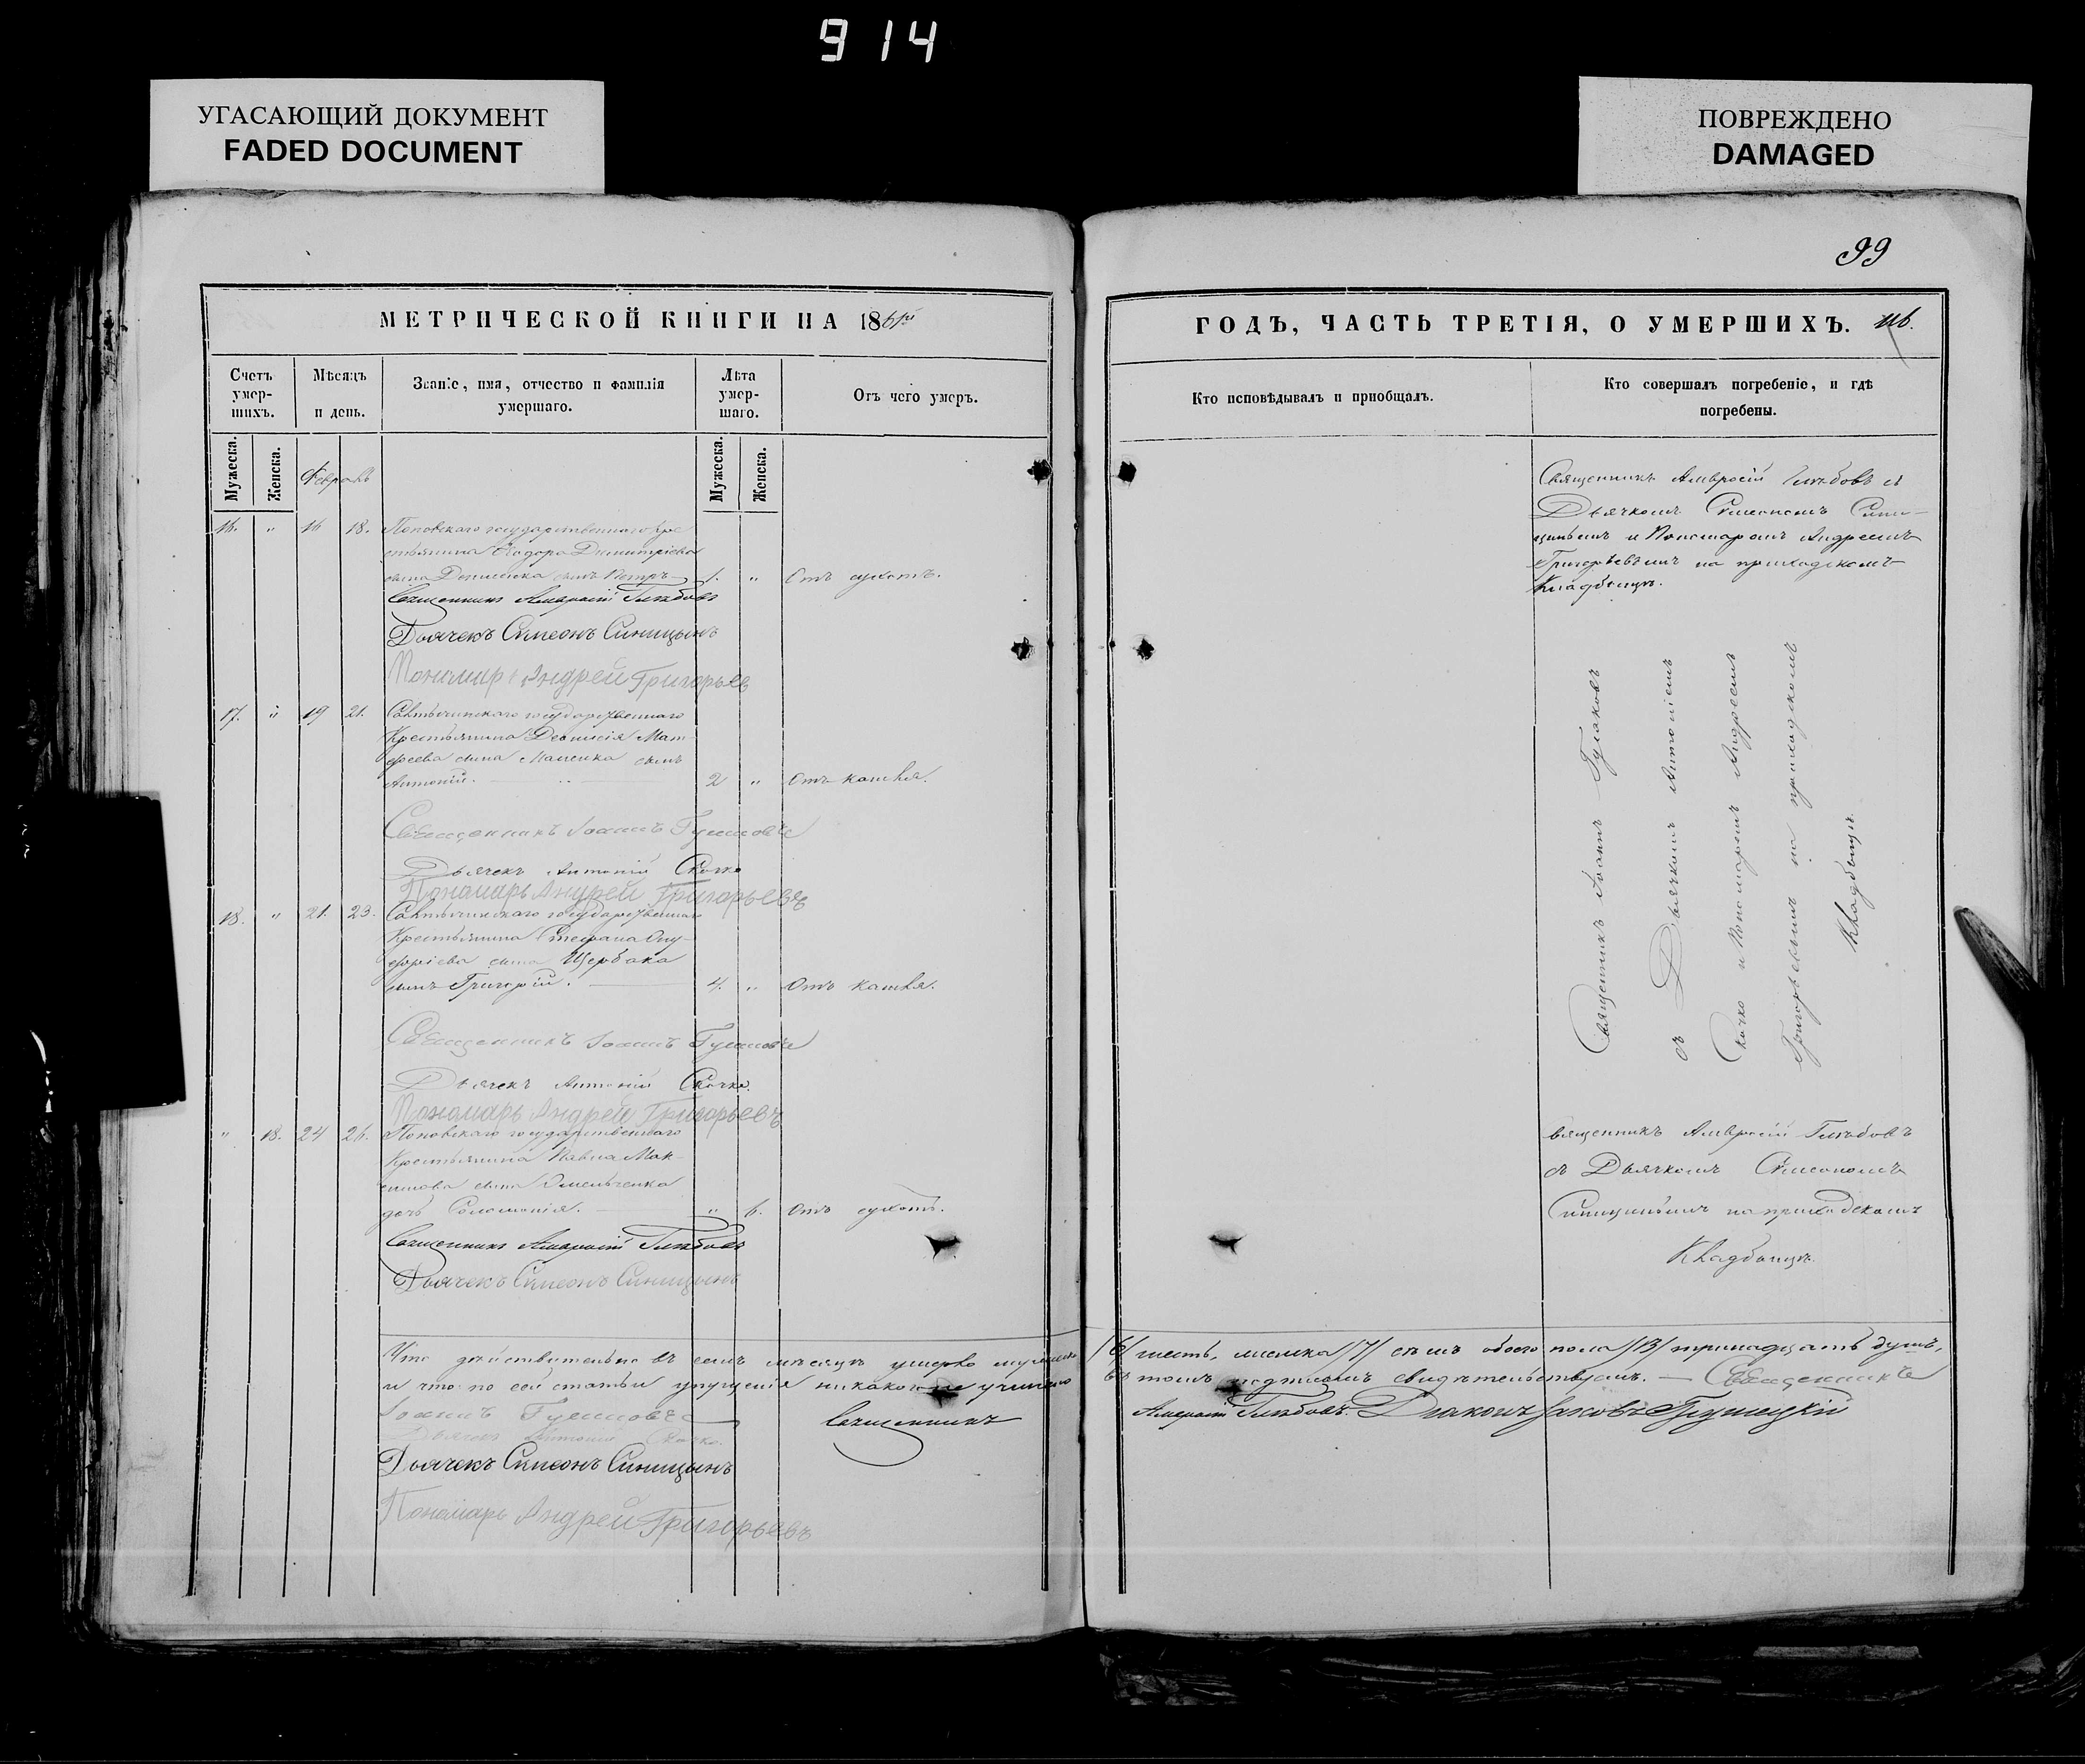 914
УГАСАЮЩИЙ ДОКУМЕНТ
FADED DOCUMENT
ПОВРЕЖДЕНО
DAMAGED
99
МЕТРИЧЕСКОЙ КНИГИ НА 1861й
Счетъ умер-шихъ.
Мѣсяцъ и день.
Званіе, имя, отчество и фамилія
умершаго.
Лѣта умер-шаго.
Отъ чего умеръ.
Мужеска.
Женска.
Февраль
Мужеска.
Женска.
16. " 16 18. Поповскаго государственнаго Кре
стьянина Ѳеодора Димитріева
сына Денисенка сынъ Петръ 1. " Отъ сухотъ.
Священникъ Амвросій Глѣбовъ
Дьячекъ Симеонъ Синицынъ
Пономарь Андрей Григорьев
17. " 19 21. государственнаго
Крестьянина Діонисія Мат-
ѳеева сына сынъ
Антоній. 2 " Отъ кашля.
Священникъ Іоаннъ
Дьячекъ Антоній Скочко
Пономарь Андрей Григорьевъ
18. " 21. 23. государственнаго
Крестьянина Стефана Ону-
фріева сына Щербака
сынъ Григорій. 4. " Отъ кашля.
Священникъ Іоаннъ
Дьячекъ Антоній Скочко.
Пономарь Андрей Григорьевъ
" 18. 24 26. Поповскаго государственнаго
Крестьянина Павла Мак-
симова сына Омельченка
дочь Соломонія. " 6. Отъ сухотъ.
Священникъ Амвросій Глѣбовъ
Дьячекъ Симеонъ Синицынъ
Что дѣйствительно въ семъ мѣсяцѣ умерло мужеска
и что по сей статьи упущенія никакого не учинено
Іоаннъ
Священникъ
Дьячекъ Антоній Скочко.
Дьячекъ Симеонъ Синицынъ
Пономарь Андрей Григорьевъ
ГОДЪ, ЧАСТЬ ТРЕТІЯ, О УМЕРШИХЪ.
Кто исповѣдывалъ и приобщалъ.
Кто совершалъ погребеніе, и гдѣ
погребены.
Священникъ Амвросій Глѣбовъ съ
Дьячкомъ Симеономъ Сини-
цынымъ и Пономаремъ Андреемъ
Григорьевымъ на приходскомъ
Кладбищѣ.
Священникъ Іоаннъ
съ Дьячкомъ Антоніемъ
Скочко и Пономаремъ Андреемъ
Григорьевымъ на приходскомъ
Кладбищѣ.
вященникъ Амвросій Глѣбовъ
съ Дьячкомъ Симеономъ
Синицынымъ на приходскомъ
Кладбищѣ.
/6/ шесть, женска /7/ семь обоего пола /13/ тринадцать душъ,
въ томъ подписомъ свидѣтельствуемъ. — Священникъ
Амвросій Глѣбовъ. Діаконъ Іаковъ